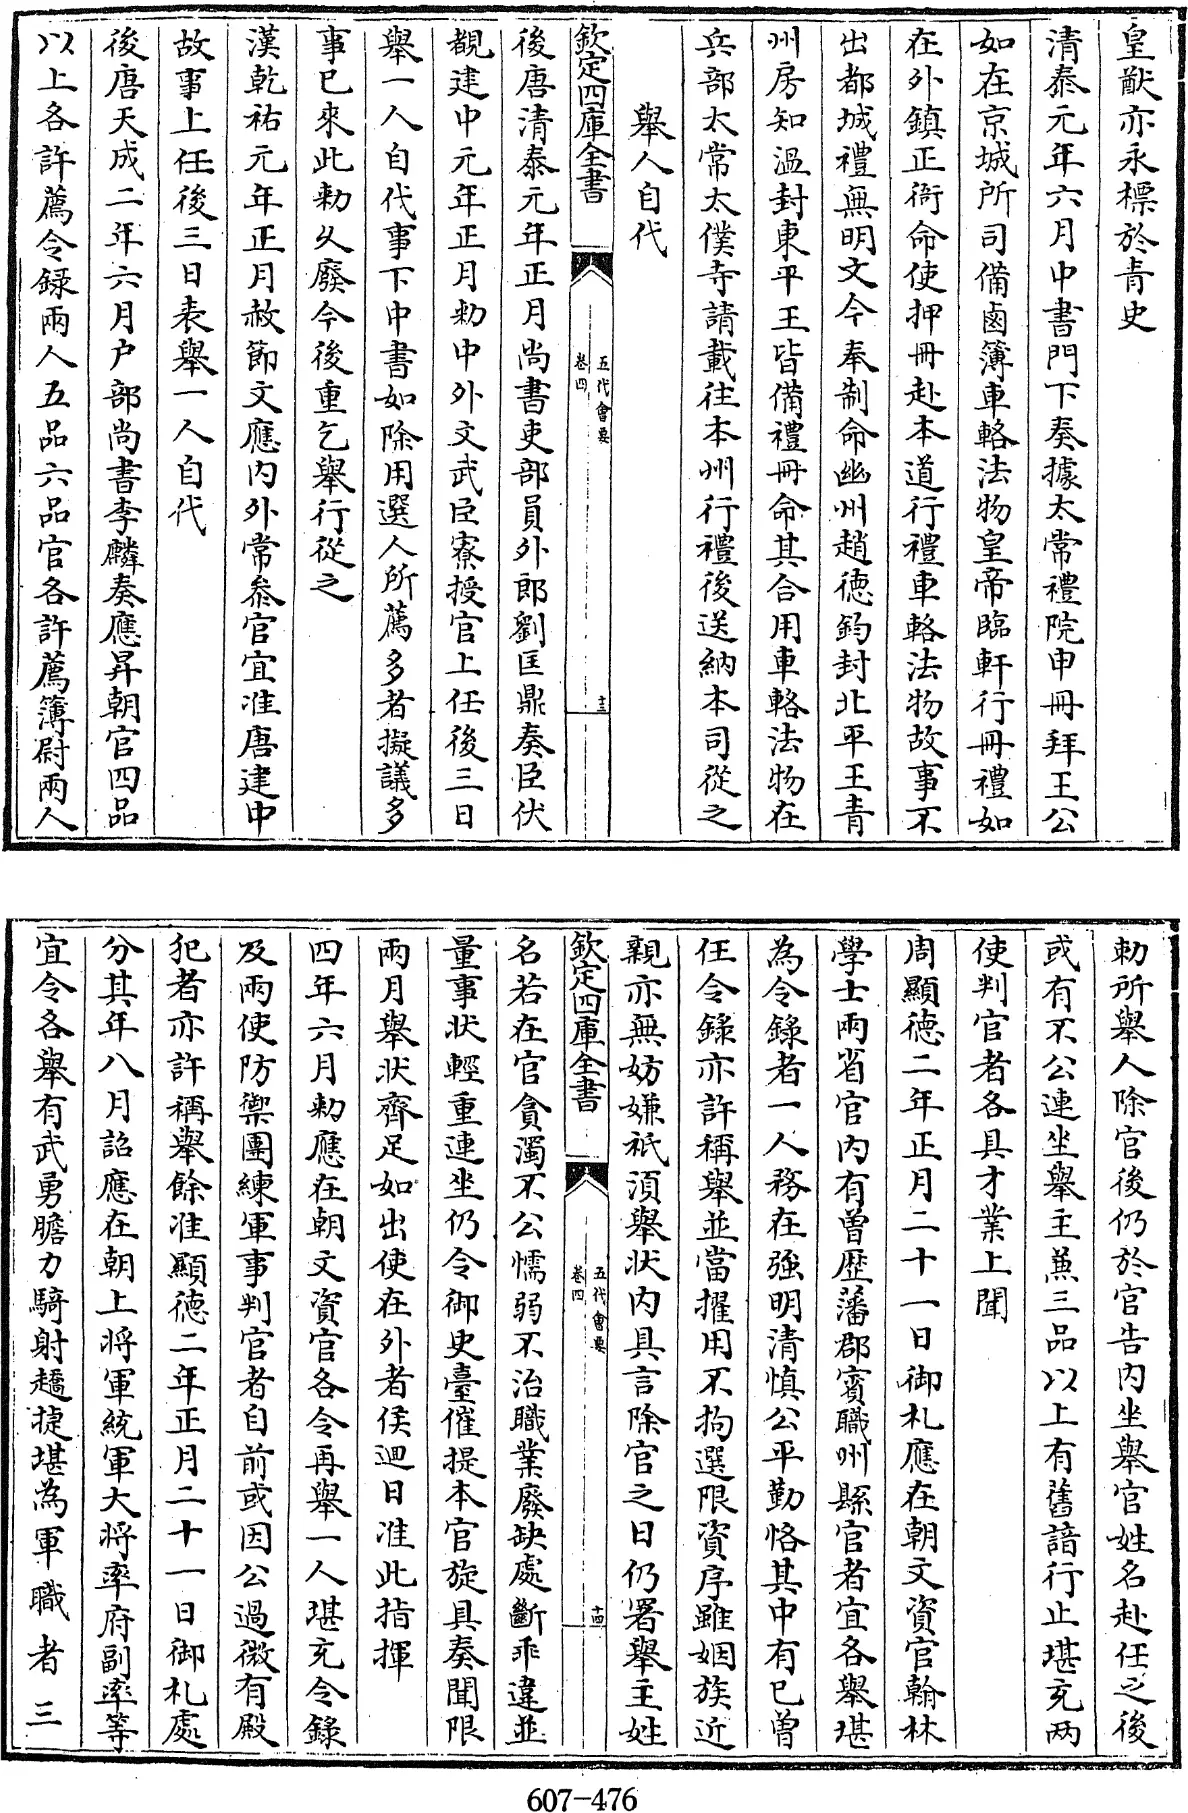 皇猷亦永標於青史
清泰元年六月中書門下奏據太常禮院申冊拜王公
如在京城所司備鹵簿車輅法物皇帝臨軒行冊禮如
在外鎮正衙命使押冊赴本道行禮車輅法物故事不
出都城禮無明文今奉制命幽州趙德鈞封北平王青
州房知溫封東平王皆備禮冊命其合用車輅法物在
兵部太常太僕寺請載往本州行禮後送納本司從之
舉人自代
欽定四庫全書
五代會要
卷四
十三
後唐清泰元年正月尚書吏部員外郎劉匡鼎奏臣伏
覩建中元年正月勅中外文武臣寮授官上任後三日
舉一人自代事下中書如除用選人所薦多者擬議多
事已來此勅久廢今後重乞舉行從之
漢乾祐元年正月赦節文應內外常叅官宜准唐建中
故事上任後三日表舉一人自代
後唐天成二年六月户部尚書李麟奏應昇朝官四品
以上各許薦令録兩人五品六品官各許薦簿尉兩人
勅所舉人除官後仍於官告內坐舉官姓名赴任之後
或有不公連坐舉主兼三品以上有舊諳行止堪充兩
使判官者各具才業上聞
周顯德二年正月二十一日御札應在朝文資官翰林
學士兩省官內有曾歷藩郡賓職州縣官者宜各舉堪
為令錄者一人務在強明清慎公平勤恪其中有已曾
任令錄亦許稱舉並當擢用不拘選限資序雖姻族近
親亦無妨嫌祇須舉狀內具言除官之日仍署舉主姓
欽定四庫全書
五代會要
卷四
十四
名若在官貪濁不公懦弱不治職業廢缺處斷乖違並
量事狀輕重連坐仍令御史臺催提本官旋具奏聞限
兩月舉狀齊足如出使在外者侯迴日准此指揮
四年六月勅應在朝文資官各令再舉一人堪充令錄
及兩使防禦團練軍事判官者自前或因公過微有殿
犯者亦許稱舉餘准顯德二年正月二十一日御札處
分其年八月詔應在朝上將軍統軍大將率府副率等
宜令各舉有武勇膽力騎射趫捷堪為軍職者三
607-476